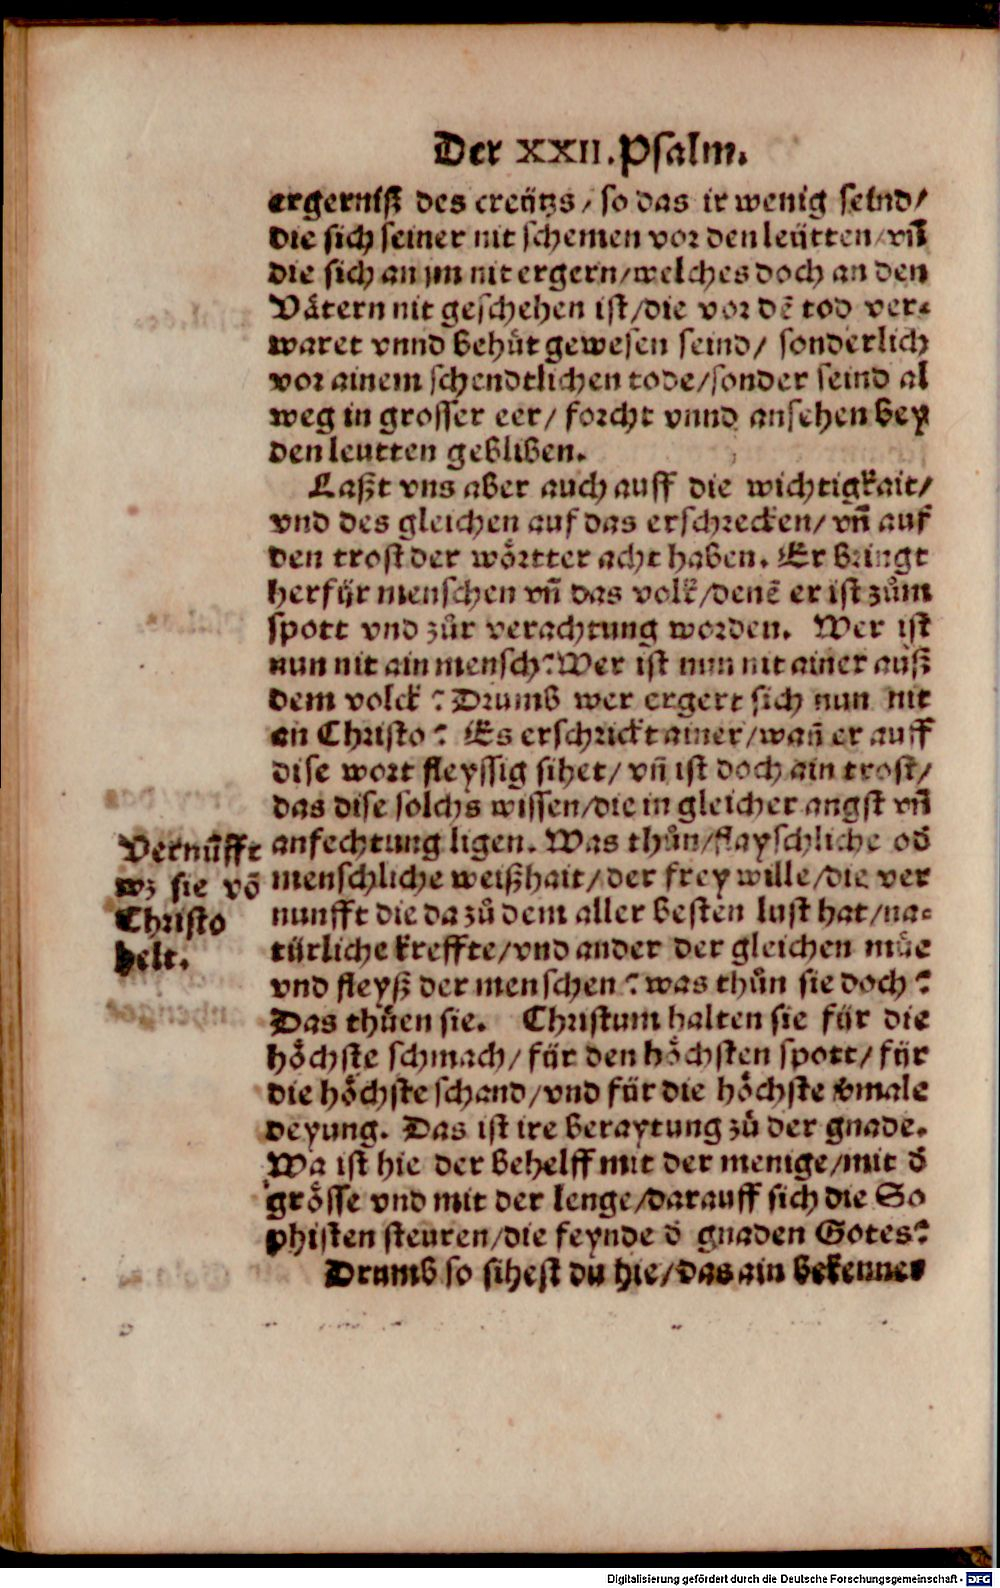 Der XXII. Psalm.
ergerniß des creützs / so das ir wenig seind /
die sich seiner nit schemen vor den leütten / vñ
die sich an jm nit ergern / welches doch an den
Vätern nit geschehen ist / die vor dē tod ver-
waret vnnd behüt gewesen seind / sonderlich
vor ainem schendtlichen tode / sonder seind al
weg in grosser eer / forcht vnnd ansehen bey
den leutten gebliben.
Laßt vns aber auch auff die wichtigkait /
vnd des gleichen auf das erschrecken / vñ auf
den trost der wörtter acht haben. Er bringt
herfür menschen vñ das volk / denē er ist zům
spott vnd zůr verachtung worden. Wer ist
nun nit ain mensch? Wer ist nun nit ainer auß
dem volck? Drumb wer ergert sich nun nit
an Christo? Es erschrickt ainer / wañ er auff
dise wort fleyssig sihet / vñ ist doch ain trost /
das dise solchs wissen / die in gleicher angst vñ
anfechtung ligen. Was thůn / flayschliche od̄
menschliche weißhait / der frey wille / die ver
nunfft die da zů dem aller besten lust hat / na-
türliche kreffte / vnd ander der gleichen müe
vnd fleyß der menschen? was thůn sie doch?
Das thüen sie. Christum halten sie für die
höchste schmach / für den höchsten spott / für
die höchste schand / vnd für die höchste v̄male
deyung. Das ist ire beraytung zů der gnade.
Wa ist hie der behelff mit der menige / mit d̄
grösse vnd mit der lenge / darauff sich die So
phisten steuren / die feynde d̄ gnaden Gotes?
Drumb so sihest du hie / das ain bekenner
Vernũfft
wz sie vō
Christo
helt.
Digitalisierung gefördert durch die Deutsche Forschungsgemeinschaft - DFG